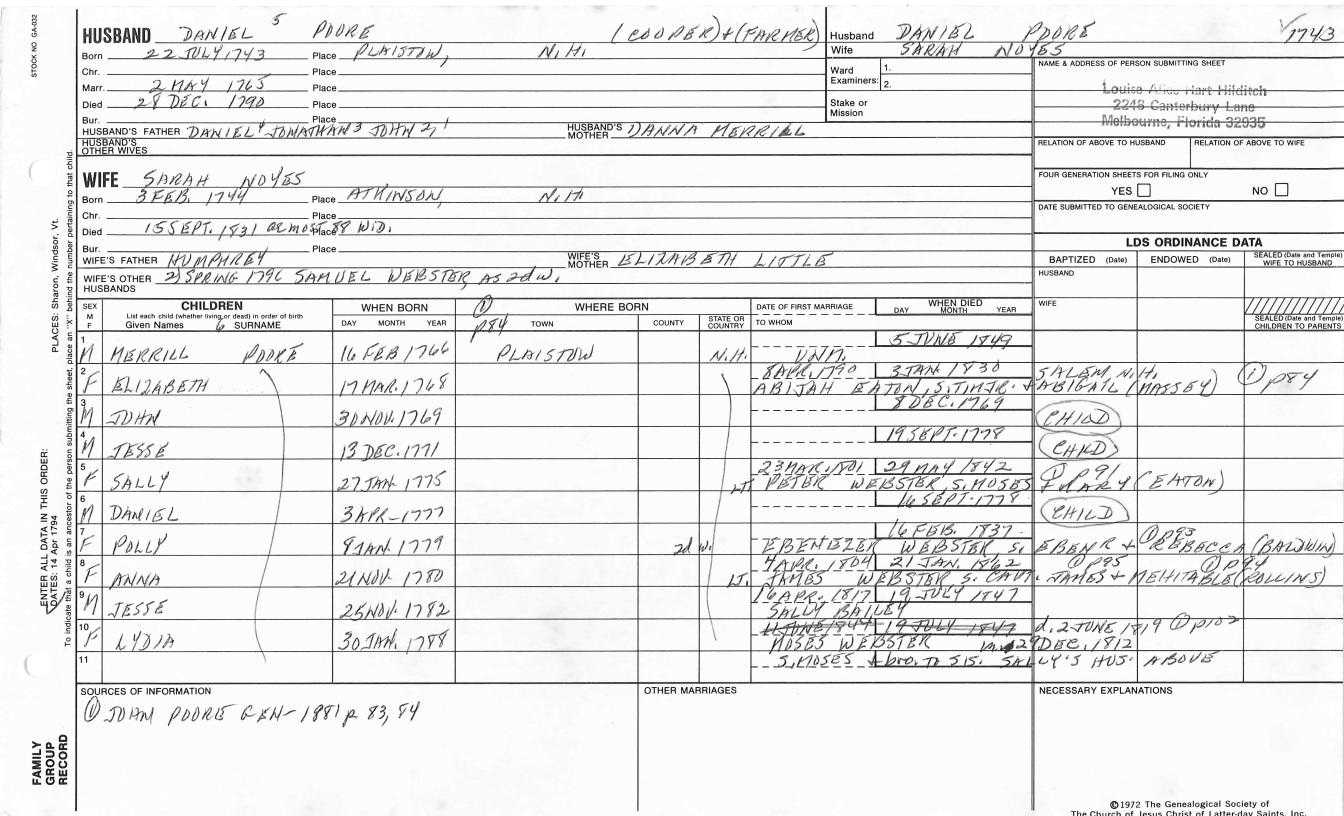 STOCK NO. GA-032
HUSBAND DANIEL 5 POORE (COOPER)+(FARMER)
Born 22 JULY 1743 Place PLAISTOW, N.H.
Chr. Place
Marr. 2 MAY 1765 Place
Died 28 DEC. 1790 Place
Bur. Place
HUSBAND'S FATHER DANIEL 4 JONATHAN 3 JOHN 2, 1 HUSBAND'S MOTHER DANNA MERRILL
HUSBAND'S OTHER WIVES
Husband DANIEL POORE 1743
Wife SARAH NOYES
Ward Examiners: 1.
2.
Stake or Mission
NAME & ADDRESS OF PERSON SUBMITTING SHEET
Louise Hart Hilditch
2248 Canterbury Lane
Melbourne, Florida 32935
RELATION OF ABOVE TO HUSBAND RELATION OF ABOVE TO WIFE
FOUR GENERATION SHEETS FOR FILING ONLY
YES NO
DATE SUBMITTED TO GENEALOGICAL SOCIETY
WIFE SARAH NOYES
Born 3 FEB. 1744 Place ATKINSON, N.H.
Chr. Place
Died 15 SEPT. 1831 almost 88 WID. Place
Bur. Place
WIFE'S FATHER HUMPHREY WIFE'S MOTHER ELIZABETH LITTLE
WIFE'S OTHER HUSBANDS 2) SPRING 1796 SAMUEL WEBSTER, AS 2d W.
LDS ORDINANCE DATA
BAPTIZED (Date) ENDOWED (Date) SEALED (Date and Temple) WIFE TO HUSBAND
HUSBAND
WIFE
SEALED (Date and Temple) CHILDREN TO PARENTS
SEX M F CHILDREN WHEN BORN WHERE BORN DATE OF FIRST MARRIAGE WHEN DIED
List each child (whether living or dead) in order of birth
Given Names 6 SURNAME DAY MONTH YEAR ① p84 TOWN COUNTY STATE OR COUNTRY TO WHOM DAY MONTH YEAR
1 M MERRILL POORE 16 FEB 1766 PLAISTOW N.H. UNM. 5 JUNE 1849
2 F ELIZABETH 17 MAR. 1768 8 APR. 1790 3 JAN. 1830 SALEM, N.H. ① p84
ABIJAH EATON, S. TIM JR. + ABIGAIL (MASSEY)
3 M JOHN 30 NOV. 1769 8 DEC. 1769 CHILD
4 M JESSE 13 DEC. 1771 19 SEPT. 1778 CHILD
5 F SALLY 27 JAN. 1775 23 MAR. 1801 29 MAY 1842 ① p 91
LT. PETER WEBSTER, S. MOSES + MARY (EATON)
6 M DANIEL 3 APR - 1777 16 SEPT. 1778 CHILD
7 F POLLY 9 JAN. 1779 16 FEB. 1837 ① p93
2d W. EBENEZER WEBSTER, S. EBENR + REBECCA (BALDWIN)
8 F ANNA 21 NOV. 1780 4 APR. 1804 21 JAN. 1862 ① p95 ① p94
LT. JAMES WEBSTER S. CAPT. JAMES + MEHITABLE (ROLLINS)
9 M JESSE 25 NOV. 1782 16 APR. 1817 19 JULY 1847
SALLY BAILEY
10 F LYDIA 30 JAN. 1788 11 JUNE 1847 19 JULY 1847 d. 2 JUNE 1819 ① p102
MOSES WEBSTER m. 29 DEC. 1812
11 S. MOSES + bro. TO SIS. SALLY'S HUS. ABOVE
SOURCES OF INFORMATION
① JOHN POORE GEN - 1881 p 83, 84
OTHER MARRIAGES
NECESSARY EXPLANATIONS
ENTER ALL DATA IN THIS ORDER:
DATES: 14 Apr 1794 PLACES: Sharon, Windsor, Vt.
To indicate that a child is an ancestor of the person submitting the sheet, place an "X" behind the number pertaining to that child.
FAMILY GROUP RECORD
©1972 The Genealogical Society of
The Church of Jesus Christ of Latter-day Saints, Inc.